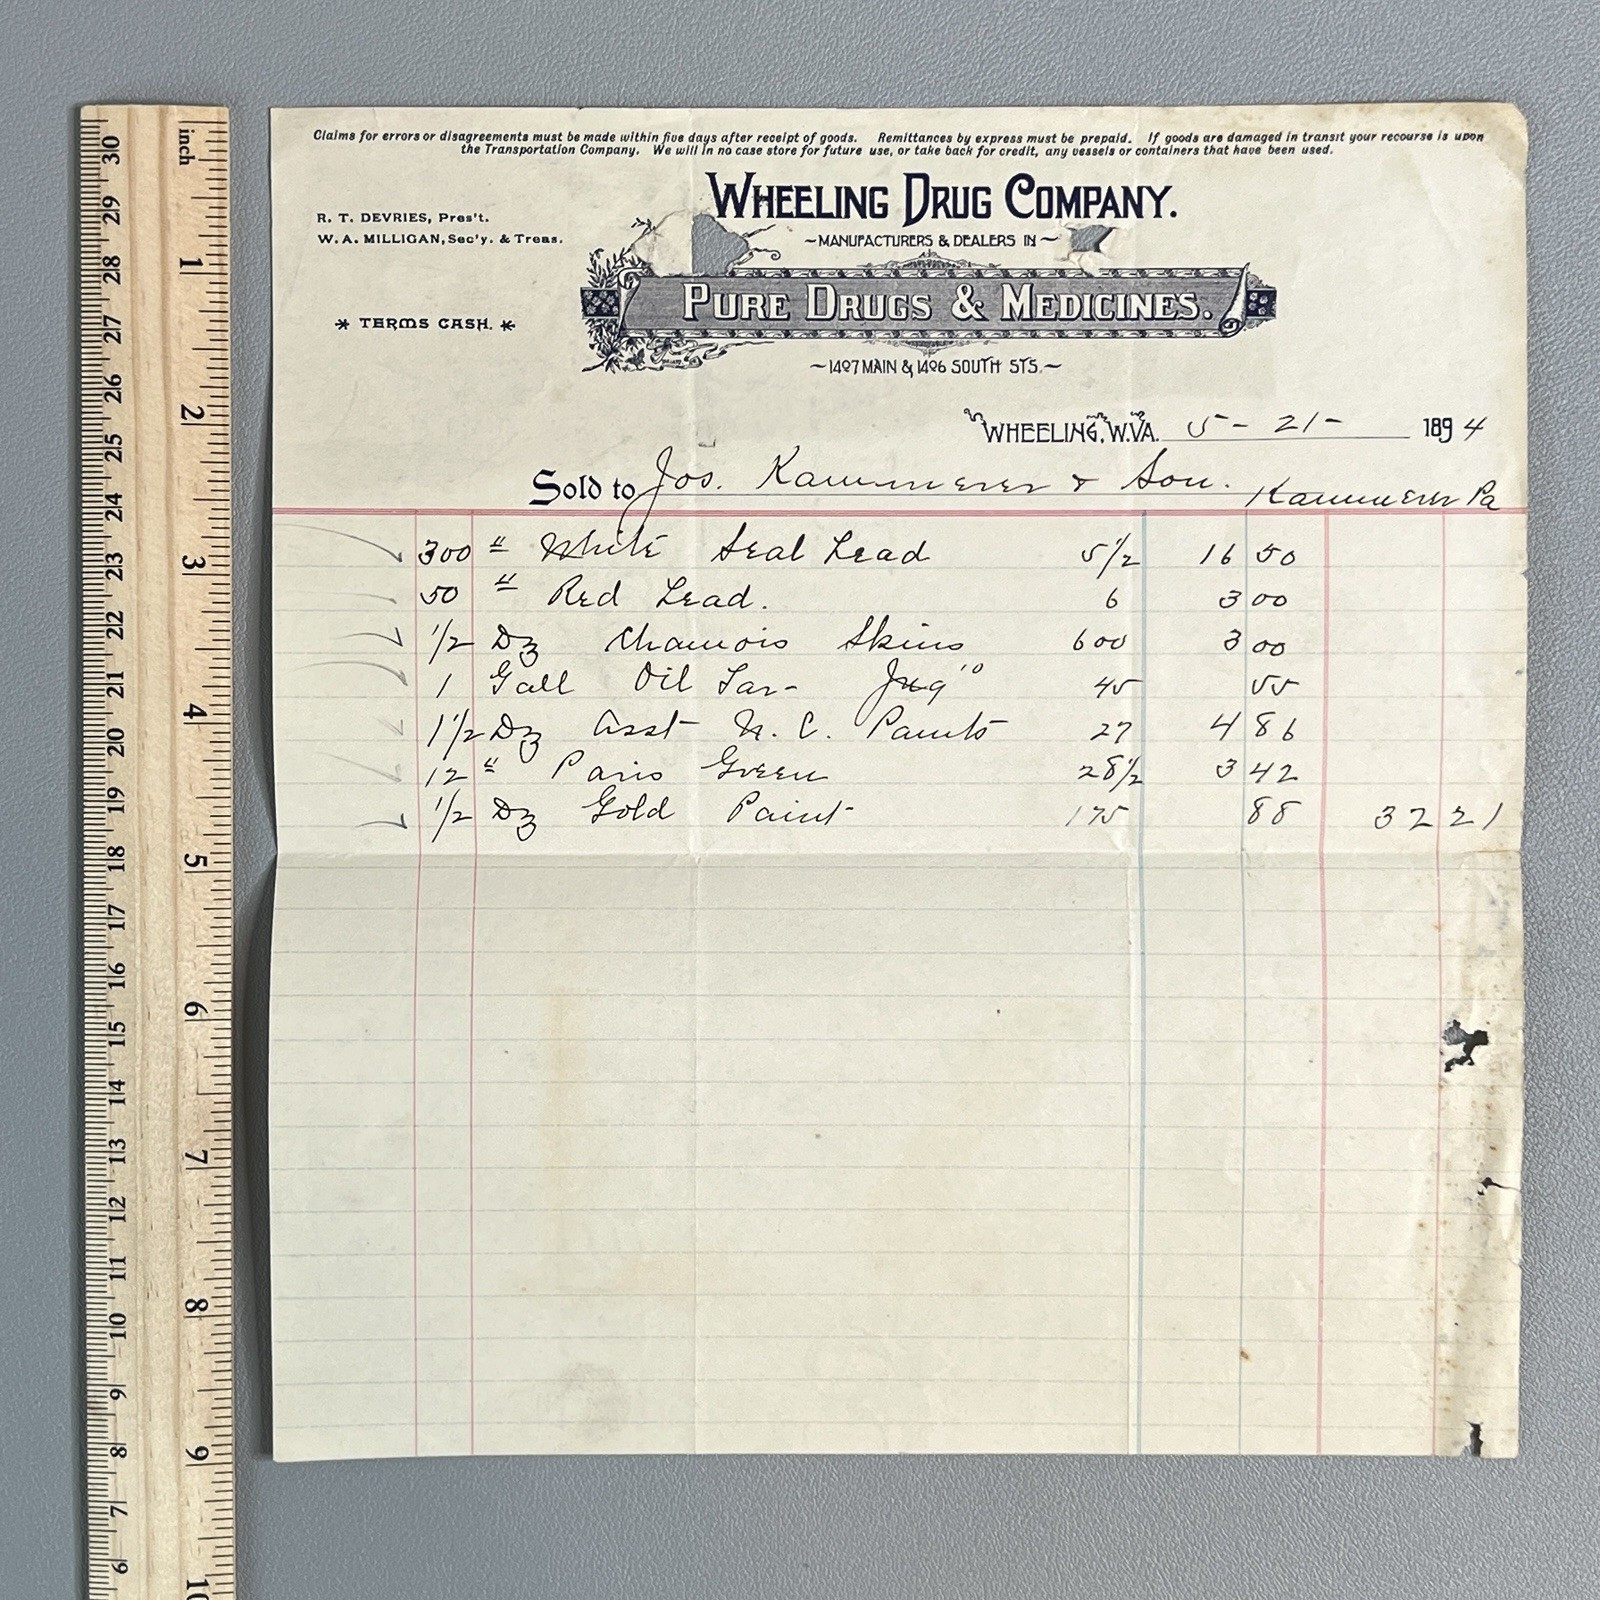 Claims for errors or disagreements must be made within five days after receipt of goods. Remittances by express must be prepaid. If goods are damaged in transit your recourse is upon
the Transportation Company. We will in no case store for future use, or take back for credit, any vessels or containers that have been used.
WHEELING DRUG COMPANY.
R. T. DEVRIES, Pres't.
W. A. MILLIGAN, Sec'y. & Treas.
~MANUFACTURERS & DEALERS IN~
PURE DRUGS & MEDICINES.
* TERMS CASH. *
~1407 MAIN & 1406 SOUTH STS.~
WHEELING, W.VA. 5-21- 1894
Sold to Jos. Kammerer & Son. Kammerer Pa
300 " White Seal Lead 5 1/2 16 50
50 " Red Lead. 6 3 00
1/2 Dz Chamois Skins 600 3 00
1 Gall Oil Tar- Jug 10 45 55
1 1/2 Dz Asst N. C. Paints 27 4 86
12 " Paris Green 28 1/2 3 42
1/2 Dz Gold Paint 175 88 32 21
inch
1
2
3
4
5
6
7
8
9
10
30
29
28
27
26
25
24
23
22
21
20
19
18
17
16
15
14
13
12
11
10
9
8
7
6